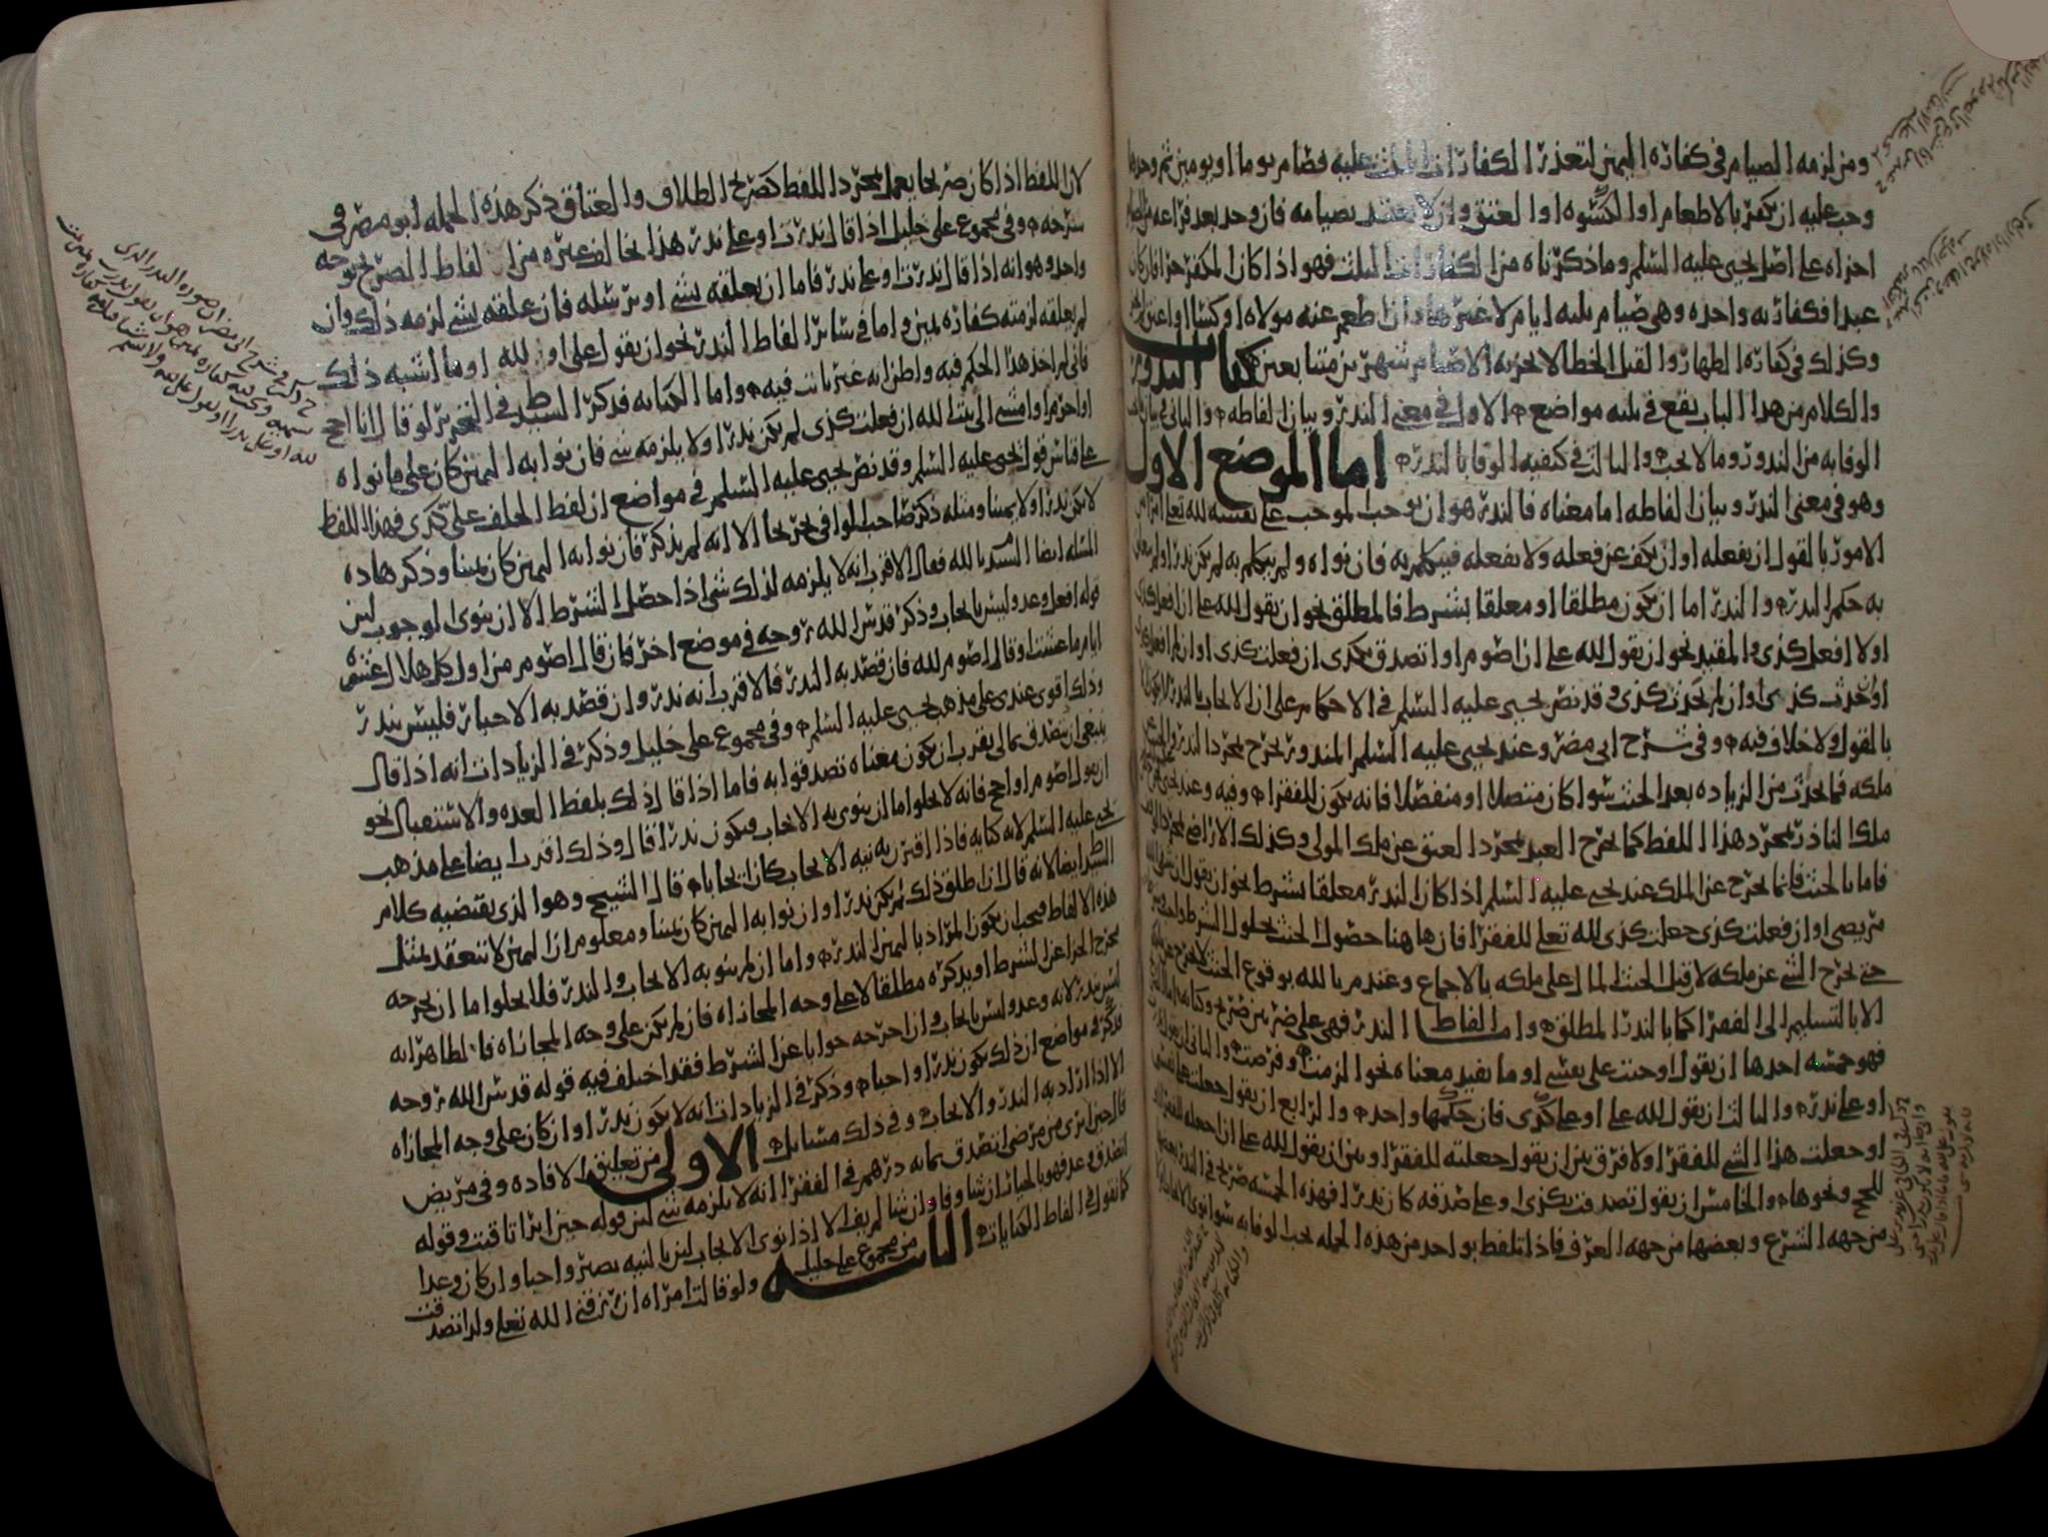 ومن لزمه الصيام في كفارة اليمين لتعذر الكفارات الثلث عليه فصام يوما او يومين ثم وجد ما
وجب عليه ان يكفر بالاطعام او الكسوه او العتق وان لا يعتد بصيامه فان وجد بعد فراغه من الصيام
اجزاه على اصل يحيى عليه السلم وما ذكرناه من الكفارات الثلث فهو اذا كان المكفر حرا فان كان
عبدا فكفارته واحده وهي صيام ثلثه ايام لا غيرها وان اطعم عنه مولاه او كسا او اعتق
وكذلك في كفارة الظهار والقتل الخطا لا يجزيه الا صيام شهرين متتابعين كتاب النذور
والكلام من هذا الباب يقع في ثلثه مواضع الاول في معنى النذر وبيان الفاظه والثاني في بيان
الوفا به من النذور وما لا يجب والثالث في كيفيه الوفا بالنذر اما الموضع الاول
وهو في معنى النذر وبيان الفاظه اما معناه فالنذر هو ان يوجب الموجب على نفسه لله تعلى امرا من
الامور بالقول ان يفعله او ان يكف عن فعله ولا يفعله فيتكلم به فان نواه ولم يتكلم به لم يكن نذرا ولم يتعلق
به حكم النذر والنذر اما ان يكون مطلقا او معلقا بشرط فالمطلق نحو ان يقول لله على ان افعل كذى
او لا افعل كذى والمقيد نحو ان يقول لله على ان اصوم او اتصدق بكذى ان فعلت كذى او ان لم افعل
او حدث كذى او ان لم يحدث كذى وقد نص يحيى عليه السلم في الاحكام على ان الايجاب بالنذر لا يكون
بالقول ولا خلاف فيه وفي شرح ابي مضر وعند يحيى عليه السلم المنذور يخرج بمجرد النذر
ملكه فما يحدث من الزياده بعد الحنث سوا كان متصلا او منفصلا فانه يكون للفقرا وفيه وعند يحيى
ملك الناذر بمجرد هذا اللفظ كما يخرج العبد بمجرد العتق عن ملك المولى وكذلك الاراضي بمجرد
فاما بالحنث فانما يخرج عن الملك عند يحيى عليه السلم اذا كان النذر معلقا بشرط نحو ان يقول ان شفى الله
مريضي او ان فعلت كذى جعلت كذى لله تعلى للفقرا فان هاهنا حصول الحنث بحلول الشرط
حتى يخرج الشي عن ملكه لا قبل الحنث المال على ملكه بالاجماع وعند م بالله بوقوع الحنث لا يخرج عن ملكه
الا بالتسليم الى الفقرا كما بالنذر المطلق واما الفاظ النذر فهي على ضربين صريح وكنايه
فهو خمسه احدها ان يقول اوجبت على نفسي او ما يفيد معناه نحو الزمت وفرضت والثاني ان يقول
او على نذر والثالث ان يقول لله على او على كذى فان حكمها واحد والرابع ان يقول جعلت على نفسي
او جعلت هذا الشي للفقرا ولا فرق بين ان يقول جعلته للفقرا وبين ان يقول لله على ان اجعله للفقرا
للحج ونحوها والخامس ان يقول تصدقت بكذى او على صدقه كان نذرا فهذه الخمسه صريح في النذر
من جهه الشرع وبعضها من جهه العرف فاذا تلفظ بواحد من هذه الجمله يجب الوفا به سوا نوى
لان اللفظ اذا كان صريحا يعمل بمجرد اللفظ كصريح الطلاق والعتاق ذكر هذه الجمله ابو مضر في
شرحه وفي مجموع على خليل اذا قال نذرت او على نذر هذا يخالف غيره من الفاظ الصريح بوجه
واحد وهو انه اذا قال نذرت او على نذر فاما ان يعلقه بشي او يرسله فان علقه بشي لزمه ذلك وان
لم يعلقه لزمته كفارة يمين واما في سائر الفاظ النذر نحو ان يقول على او لله او ما اشبه ذلك
فاني لم اجد هذا الحكم فيه واظن انه غير ثابت فيه واما الكنايه فذكر السيد ط في التحرير لو قال انا احج
او احرم او امشي الى بيت الله ان فعلت كذى لم يكن نذرا ولا يلزمه شي فان نوا به اليمين كان على ما نواه
على قياس قول يحيى عليه السلم وقد نص يحيى عليه السلم في مواضع ان لفظ الحلف على كذى فهذا اللفظ
لا يكن نذرا ولا يمينا ومثله ذكر صاحب الوافي تخريجا الا انه لم يذكر فان نوا به اليمين كان يمينا وذكر هاذه
المسله ايضا السيد م بالله فقال الاقرب انه لا يلزمه لذلك شي اذا حصل الشرط الا ان ينوي الوجوب لان
قوله افعل وعد وليس بايجاب وذكر قدس الله روحه في موضع اخر فان قال اصوم من اول كل هلال عشره
ايام ما عشت او قال اصوم لله فان قصد به النذر فالاقرب انه نذر وان قصد به الاخبار فليس بنذر
وذلك اقوى عندي على مذهب يحيى عليه السلم وفي مجموع على خليل وذكر في الزيادات انه اذا قال
ينبغي ان يتصدق بمالي يقرب ان يكون معناه تصدقوا به فاما اذا قال ذلك بلفظ العده والاستقبال نحو
ان يقول اصوم او احج فانه لا يخلوا اما ان ينوي به الايجاب فيكون نذرا قال وذلك اقرب ايضا على مذهب
يحيى عليه السلم لانه كنايه فاذا اقترن به نيه الايجاب كان ايجابا قال الشيخ وهو الذي يقتضيه كلام
السيد ط ايضا لانه قال اذا اطلق ذلك لم يكن نذرا وان نوا به اليمين كان يمينا ومعلوم ان اليمين لا تنعقد بمثل
هذه الالفاظ فيجب ان يكون المراد باليمين النذر واما ان لم ينو به الايجاب والنذر فلا يخلوا اما ان يخرجه
مخرج الجزا عن الشرط او يذكره مطلقا لا على وجه المجازاه فان لم يكن على وجه المجازاه فالظاهر انه
ليس بنذر لانه وعد وليس بايجاب وان اخرجه جوابا عن الشرط فقد اختلف فيه قوله قدس الله روحه
فذكر في مواضع ان ذلك يكون نذرا واجبا وذكر في الزيادات انه لا يكون نذرا وان كان على وجه المجازاه
الا اذا اراد به النذر والايجاب وفي ذلك مسايل الاولى من تعليق الافاده وفي مريض
قال حين ابرى من مرضي اتصدق بمائه درهم في الفقرا انه لا يلزمه شي لان قوله حين ابرا تاقيت وقوله
اتصدق وعد فهو بالخيار ان شا وفا وان شا لم يف الا اذا نوى الايجاب لان بالنيه يصير واجبا وان كان وعدا
كما نقول في الفاظ الكنايات الثانيه من مجموع على خليل ولو قالت امراه ان رزقني الله تعلى ولدا تصدقت